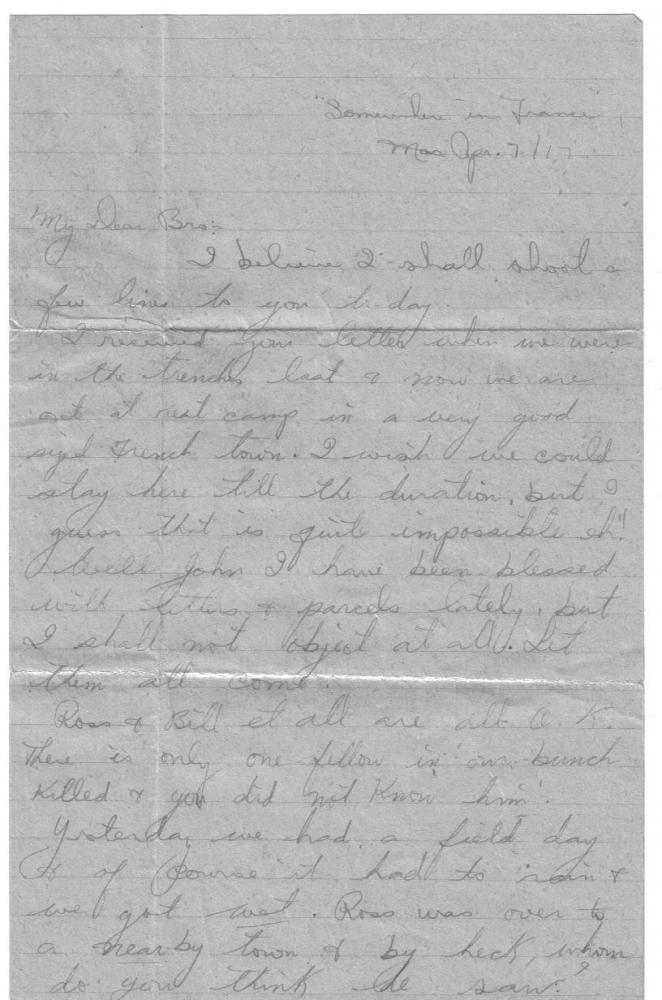 "Somewhere in France",
Apr. 7/17.
My Dear Bro:-
I believe I shall shoot a
few lines to you to-day.
I received your letter when we were
in the trenches last & now we are
out at rest camp in a very good
sized French town. I wish we could
stay here till the duration, but I
guess that is quite impossible eh!
Well John I have been blessed
with letters & parcels lately, but
I shall not object at all. Let
them all come.
Ross & Bill et all are all O. K.
There is only one fellow in our bunch
killed & you did not know him.
Yesterday we had a field day
& of course it had to rain &
we got wet. Ross was over to
a nearby town & by heck, whom
do you think he saw?